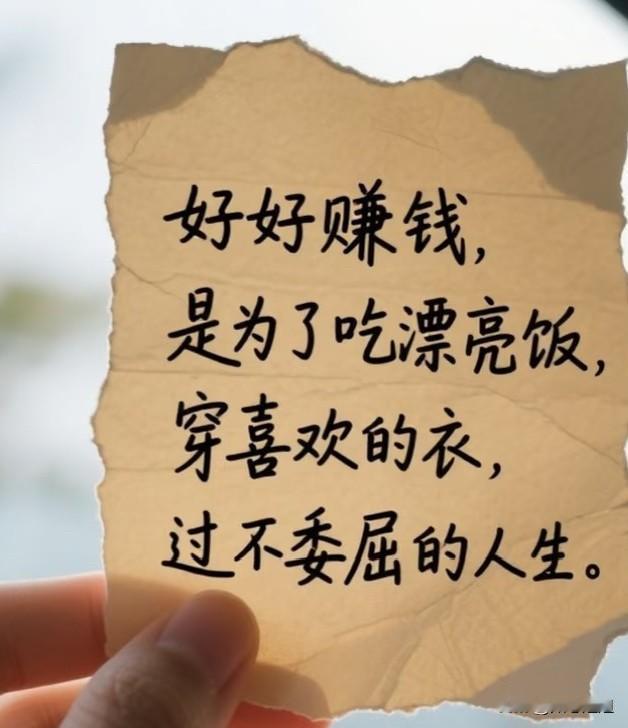 好好赚钱，
是为了吃漂亮饭，
穿喜欢的衣，
过不委屈的人生。